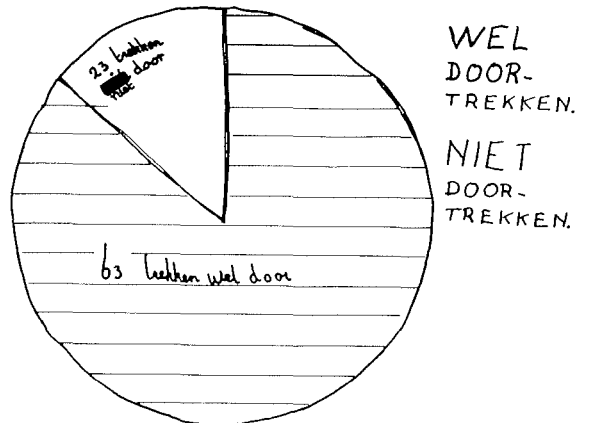 23 trekken
door
niet
63 trekken wel door
WEL
DOOR-
TREKKEN.
NIET
DOOR-
TREKKEN.